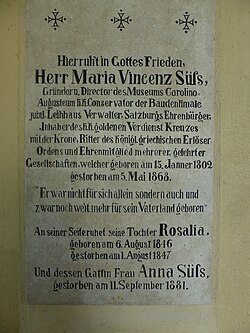 Hier ruh't in Gottes Frieden,
Herr Maria Vincenz Süſs,
Gründer u. Director des Museums Carolino-
Augusteum k.k. Conservator der Baudenkmale
jubil. Leihhaus Verwalter, Salzburgs Ehrenbürger,
Inhaber des k.k. goldenen Verdienst Kreuzes
mit der Krone, Ritter des Königl. griechischen Erlöser
Ordens und Ehrenmitglied mehrerer, gelehrter
Gesellschaften, welcher geboren am 15. Jänner 1802
gestorben am 5. Mai 1868.
"Er war nicht für sich allein sondern auch und
zwar noch weit mehr für sein Vaterland geboren"
An seiner Seite ruhet seine Tochter Rosalia,
geboren am 6. August 1846
gestorben am 1. August 1847
Und dessen Gattin Frau Anna Süſs,
gestorben am 11. September 1881.